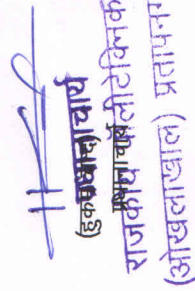 प्रधानाचार्य
राजकीय पालीटेक्निक
(ओखलाखाल) प्रतापनगर